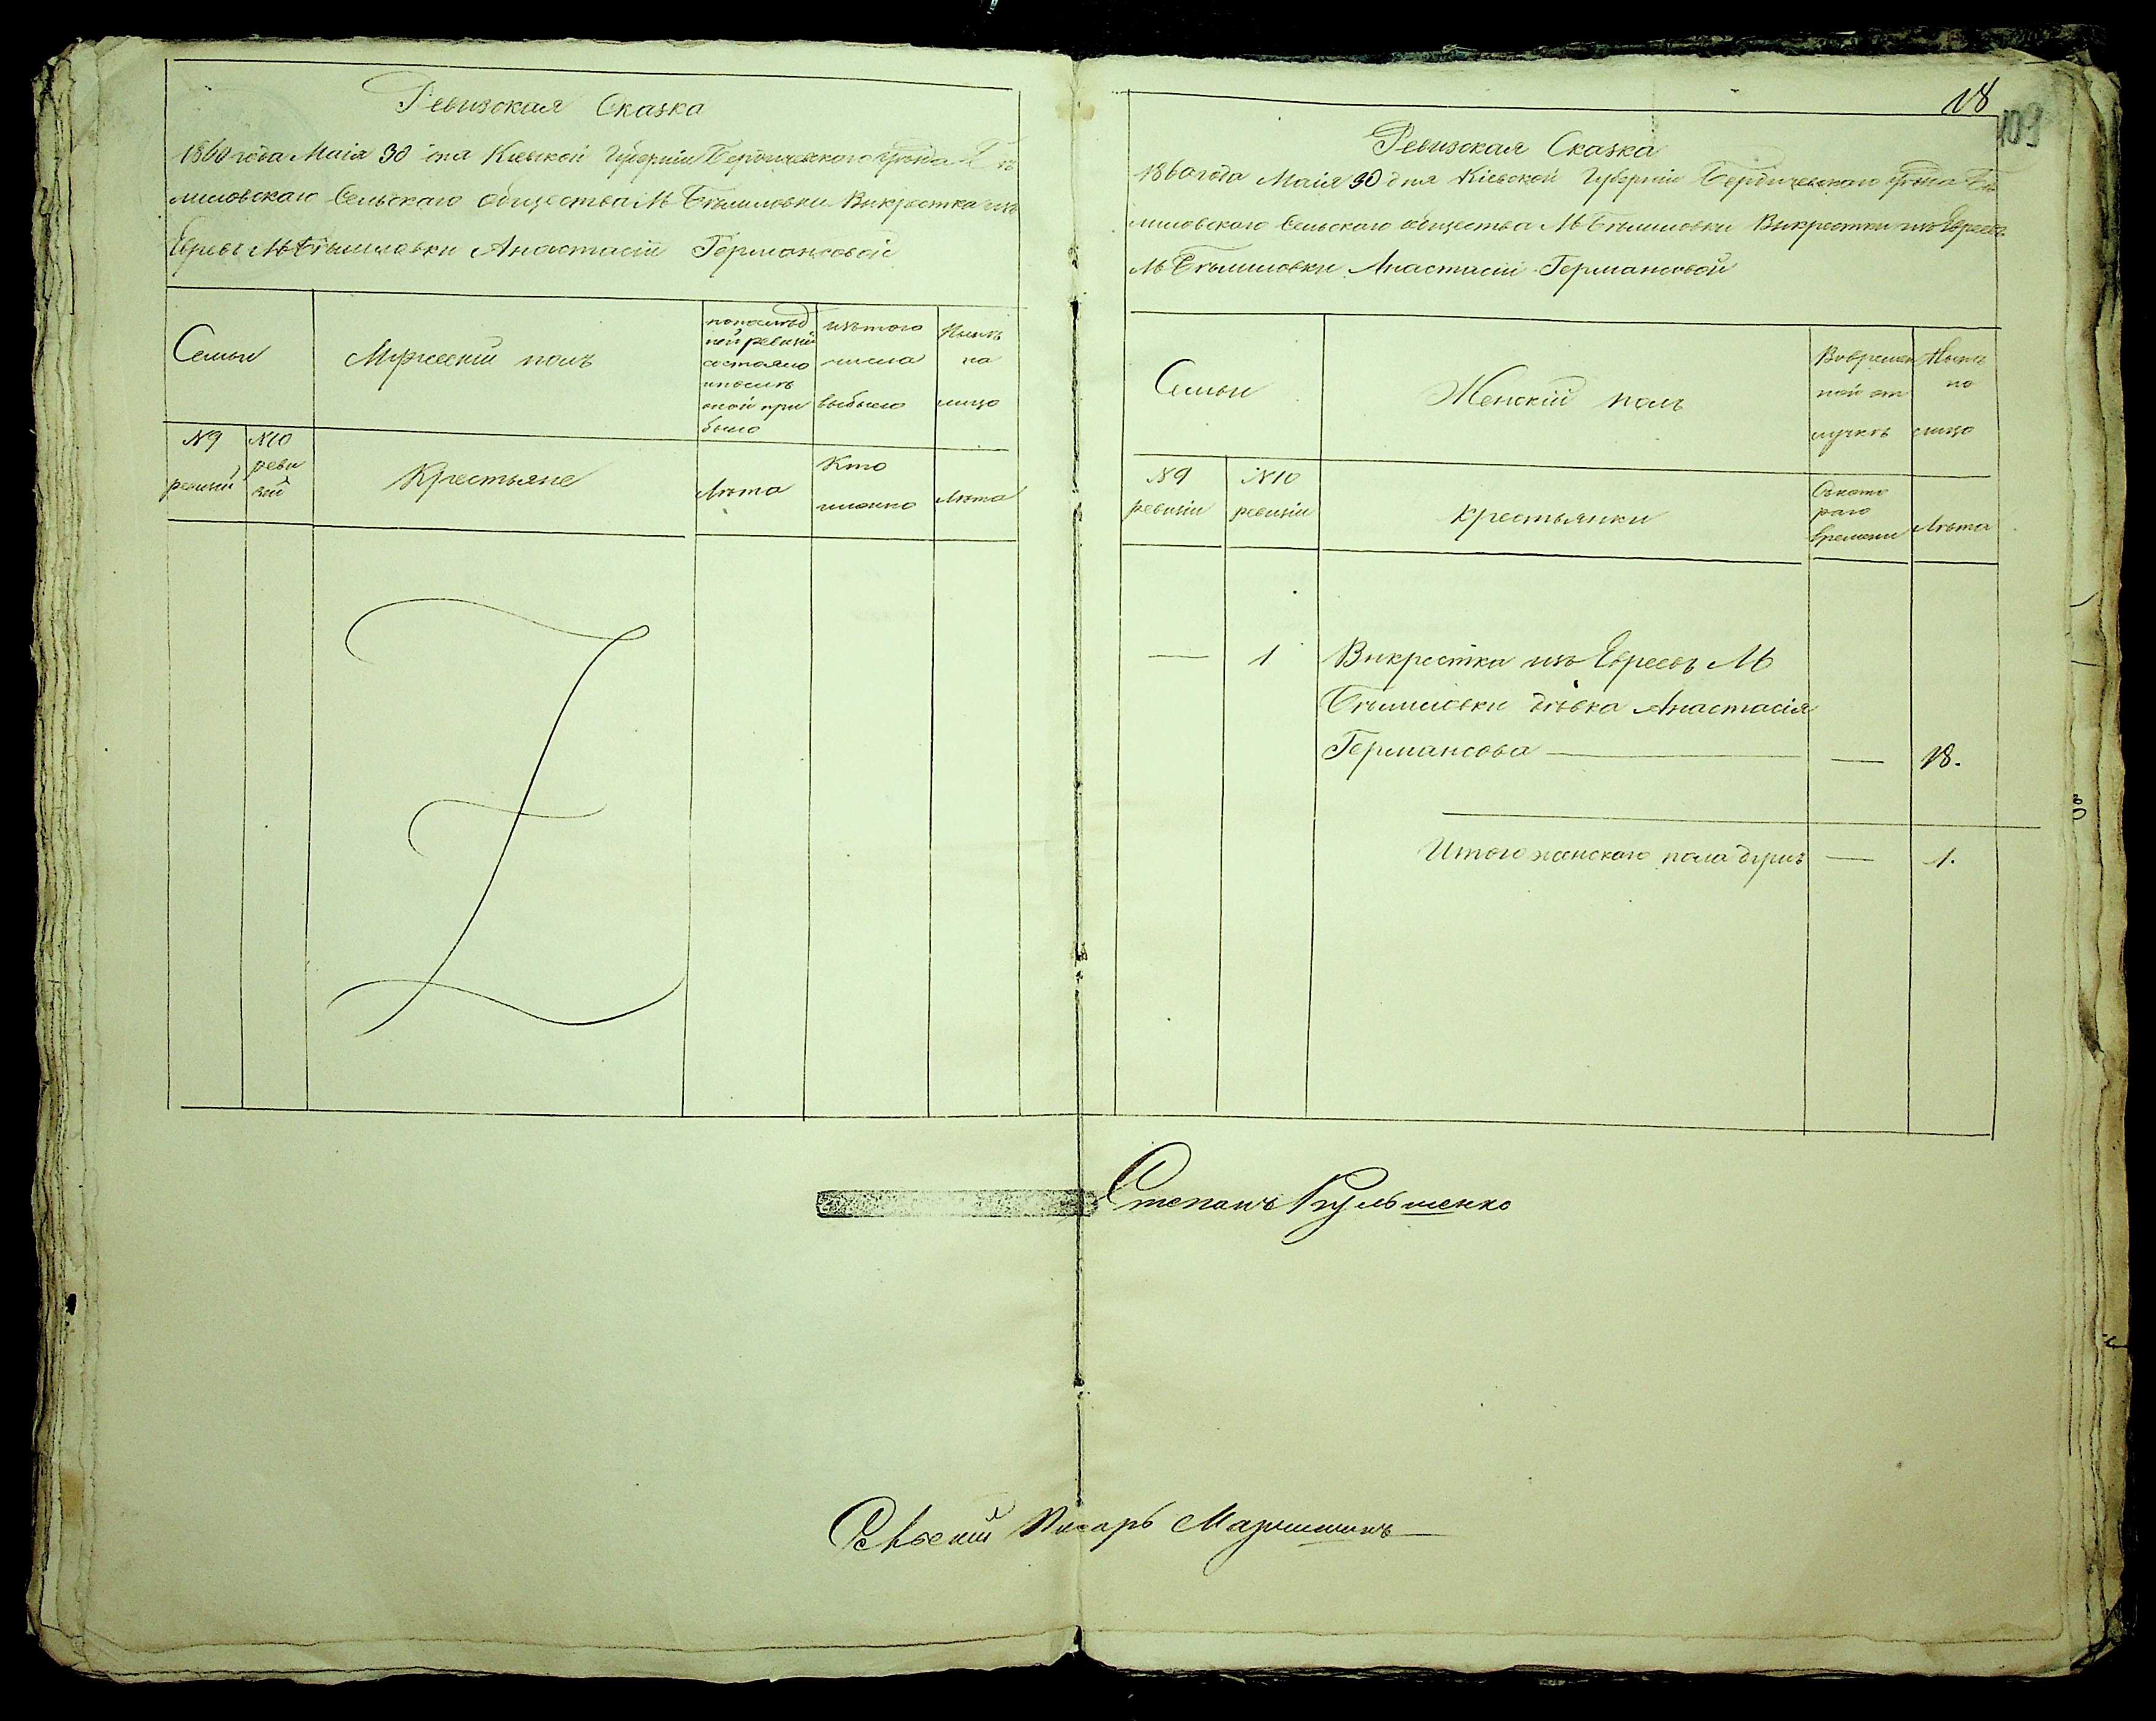 Ревизская Сказка
1860 года Маія 30 дня Кіевской Губерніи Бердичевскаго уѣзда Бѣ
лиловскаго Сельскаго общества М Бѣлиловки Викрестка изъ
Евреевъ М Бѣлиловки Анастасіи Германсовой
Семьи
Мужескій полъ
по послѣд
ней ревизіи
состояло
и послѣ
оной при
было
изъ того
числа
выбыло
Нынѣ
на
лицо
№9
ревизіи
№10
реви
зіи
Крестьяне
Лѣта
Кто
именно
Лѣта
18
109
Ревизская Сказка
1860 года Маія 30 дня Кіевской Губерніи Бердичевскаго уѣзда Бѣ
лиловскаго Сельскаго общества М Бѣлиловки Викрестки изъ Евреевъ
М Бѣлиловки Анастасіи Германсовой
Семьи
Женскій полъ
Во времен
ной от
лучкѣ
Нынѣ
на
лицо
№9
ревизіи
№10
ревизіи
Крестьянки
Съ кото
раго
времени
Лѣта
— 1 Викрестка изъ Евреевъ М
Бѣлиловки дѣвка Анастасія
Германсова — — 18.
Итого женскаго пола душъ — 1.
Степанъ Кульшенко
Сельский Писарь